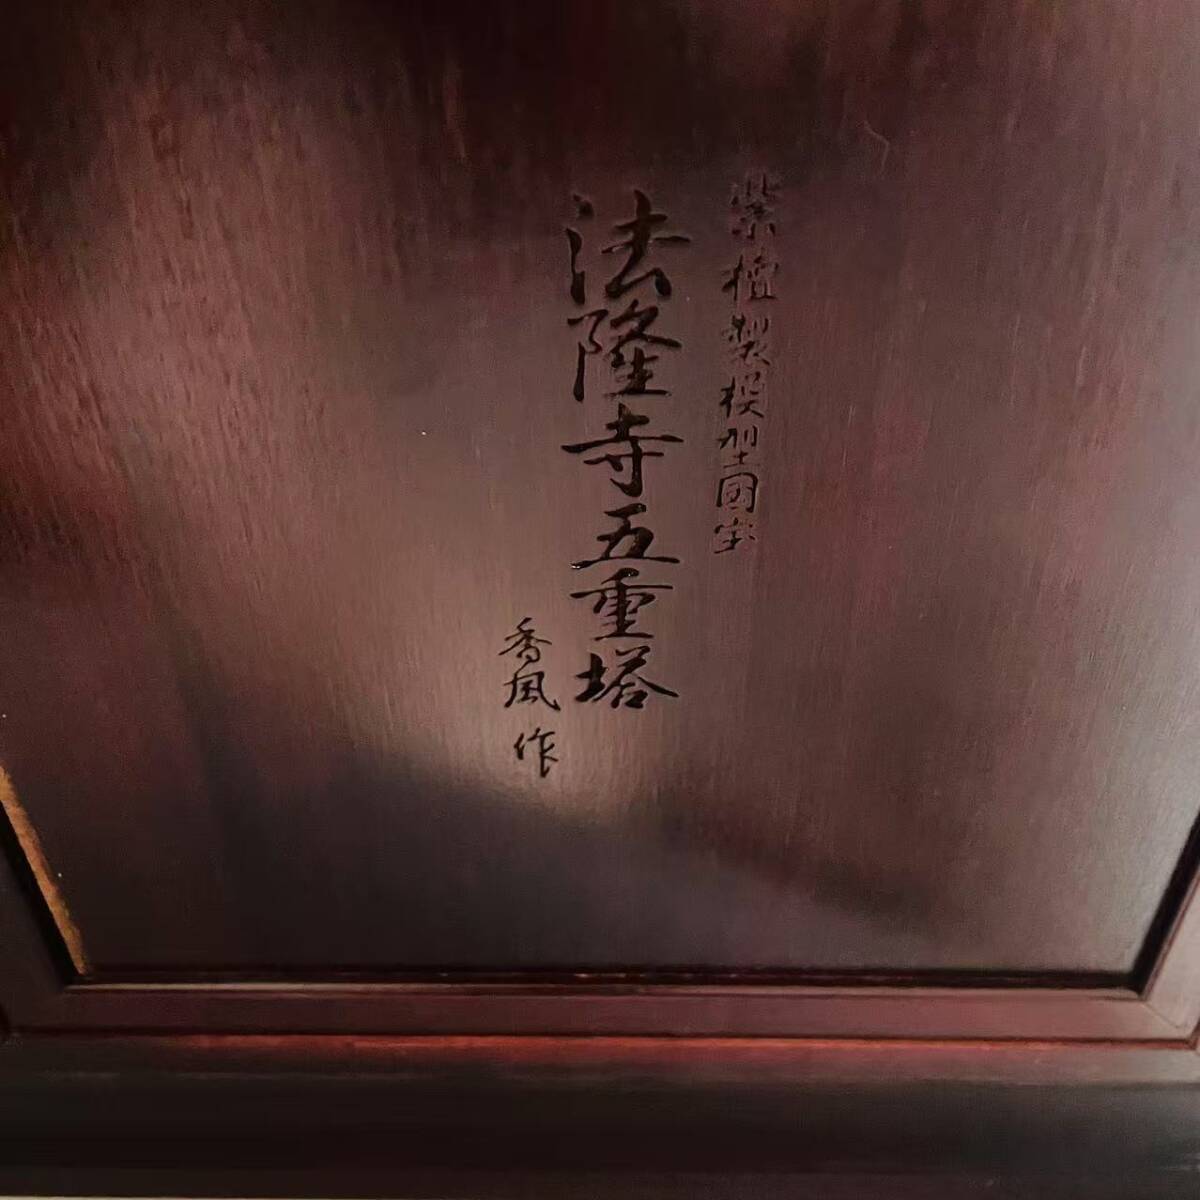 紫檀製模型國宝
法隆寺五重塔
香風作